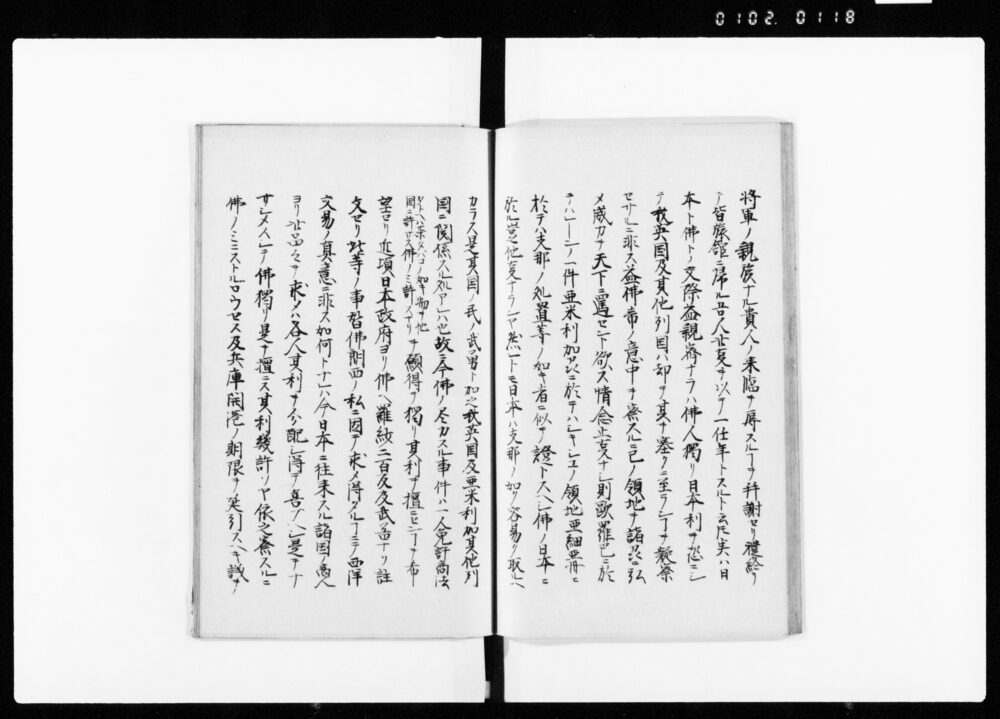 0102.0118
将軍ノ親族ナル貴人ノ来臨ヲ辱スルヿヲ拝謝セリ禮終リ
テ皆旅舘ニ帰ル吾人茲夏ヲ以テ一仕年トスルト云圧実ハ日
本ト佛トノ交際益親密ナラハ佛人獨リ日本利ヲ恣ニシ
テ我英国及其他列国ハ却ヲ其ヲ塞クニ至ランヿヲ疑察
セサルニ非ス益佛帝ノ意中ヲ察スルニ己ノ領地ヲ諸邦ニ弘
メ威力ヲ天下ニ騁セント欲ス情念
則歐羅巴ニ於
テハ ノ一件亜米利加邦ニ於テハ ノ領地亜細亜ニ
於テハ支那ノ処置等ノ如キ者ニ似ヲ證トスヘシ佛ノ日本ニ
於ル豈他夏ナランヤ然レトモ日本ハ支那ノ如ク容易ク取ルヘ
カラス是其国ノ民ノ武勇ト加之我英国及亜米利加其他列
国ニ関係スル処アレハ也故ニ今佛ノ尽力スル事件ハ一人免許商法
ヲ願得テ獨リ其利ヲ擅ニセンヿヲ希
望セリ近頃日本政府ヨリ佛ヘ羅紗二百反及武噐ナリ註
文セリ此等ノ事皆佛 ノ私ニ因テ求メ得タルヿニテ西洋
交易ノ真意ニ非ス如何トナレハ今日本ニ往来スル諸国ノ商人
ヨリ此品々ヲ求メハ各人其利ヲ分配シ得テ喜フヘシ是ヲナ
サシメスシテ佛獨リ是ヲ擅ニス其利幾許ソヤ依之察スルニ
佛ノミニストルロウセス及兵庫開港ノ期限ヲ延引スヘキ議ヲ